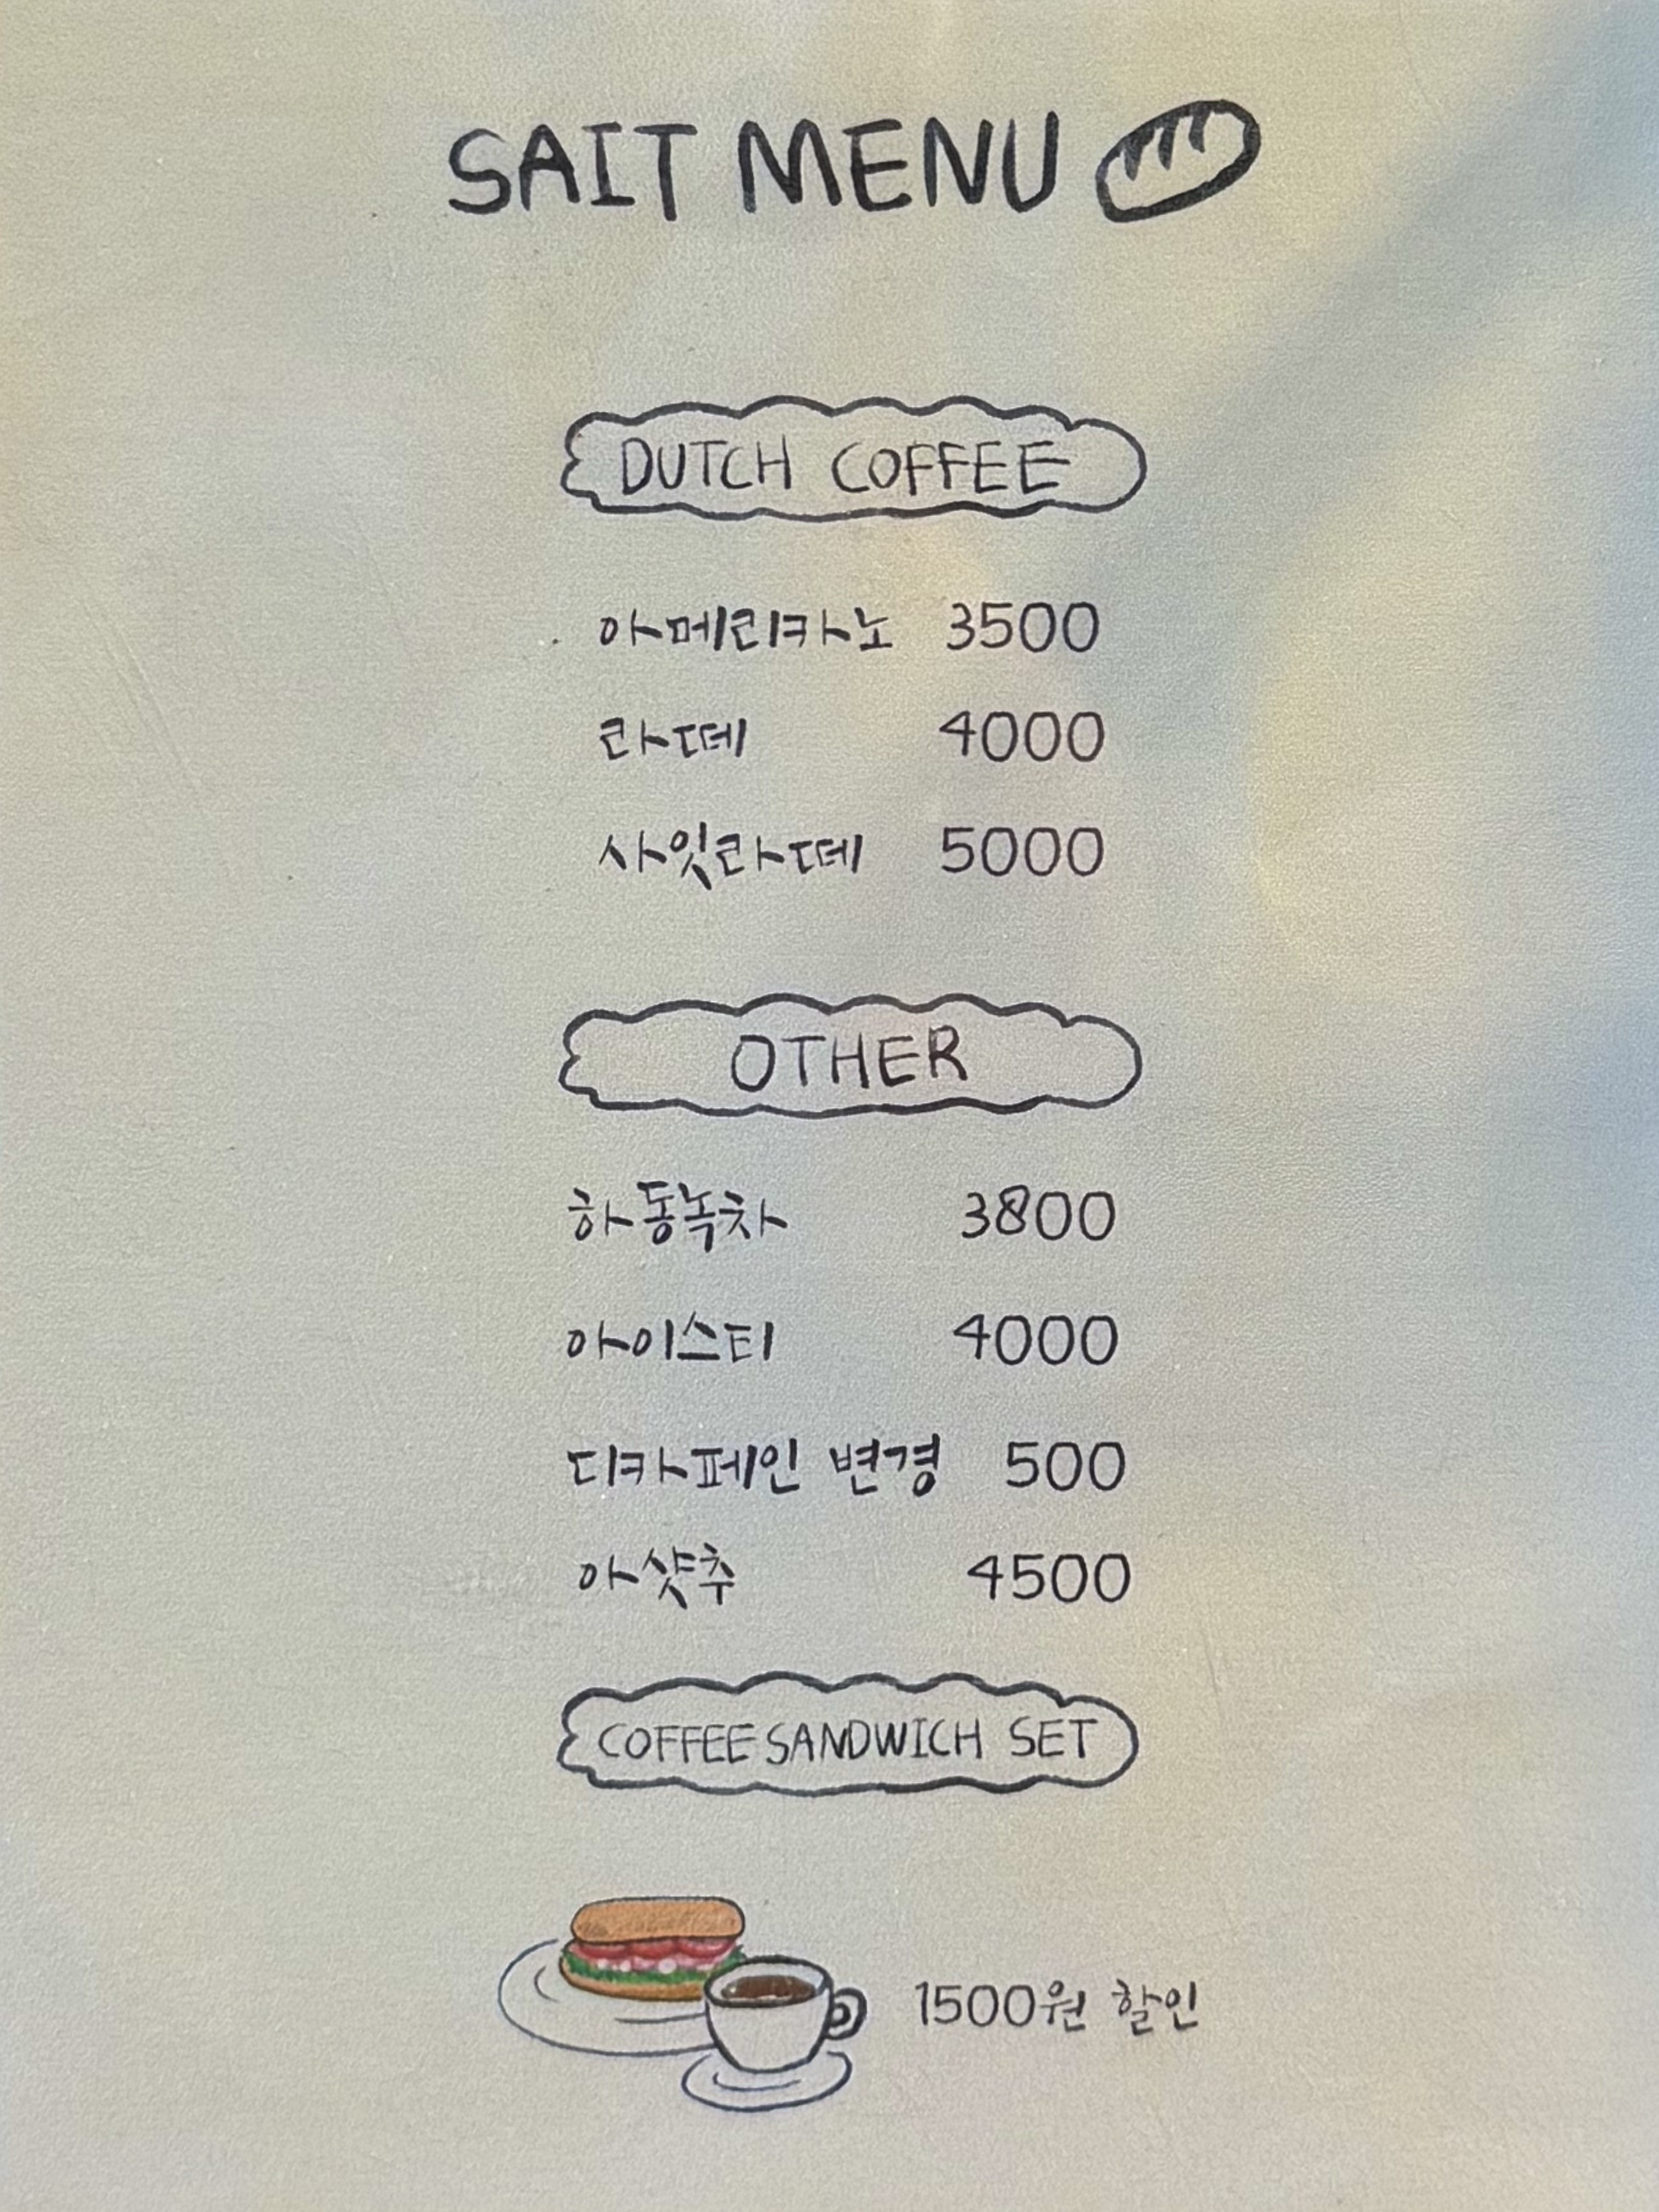 SAIT MENU
DUTCH COFFEE
아메리카노 3500
라떼 4000
사잇라떼 5000
OTHER
하동녹차 3800
아이스티 4000
디카페인 변경 500
아샷추 4500
COFFEE SANDWICH SET
1500원 할인